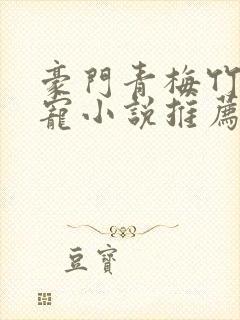 豪門青梅竹
寵小說推薦
豆寶